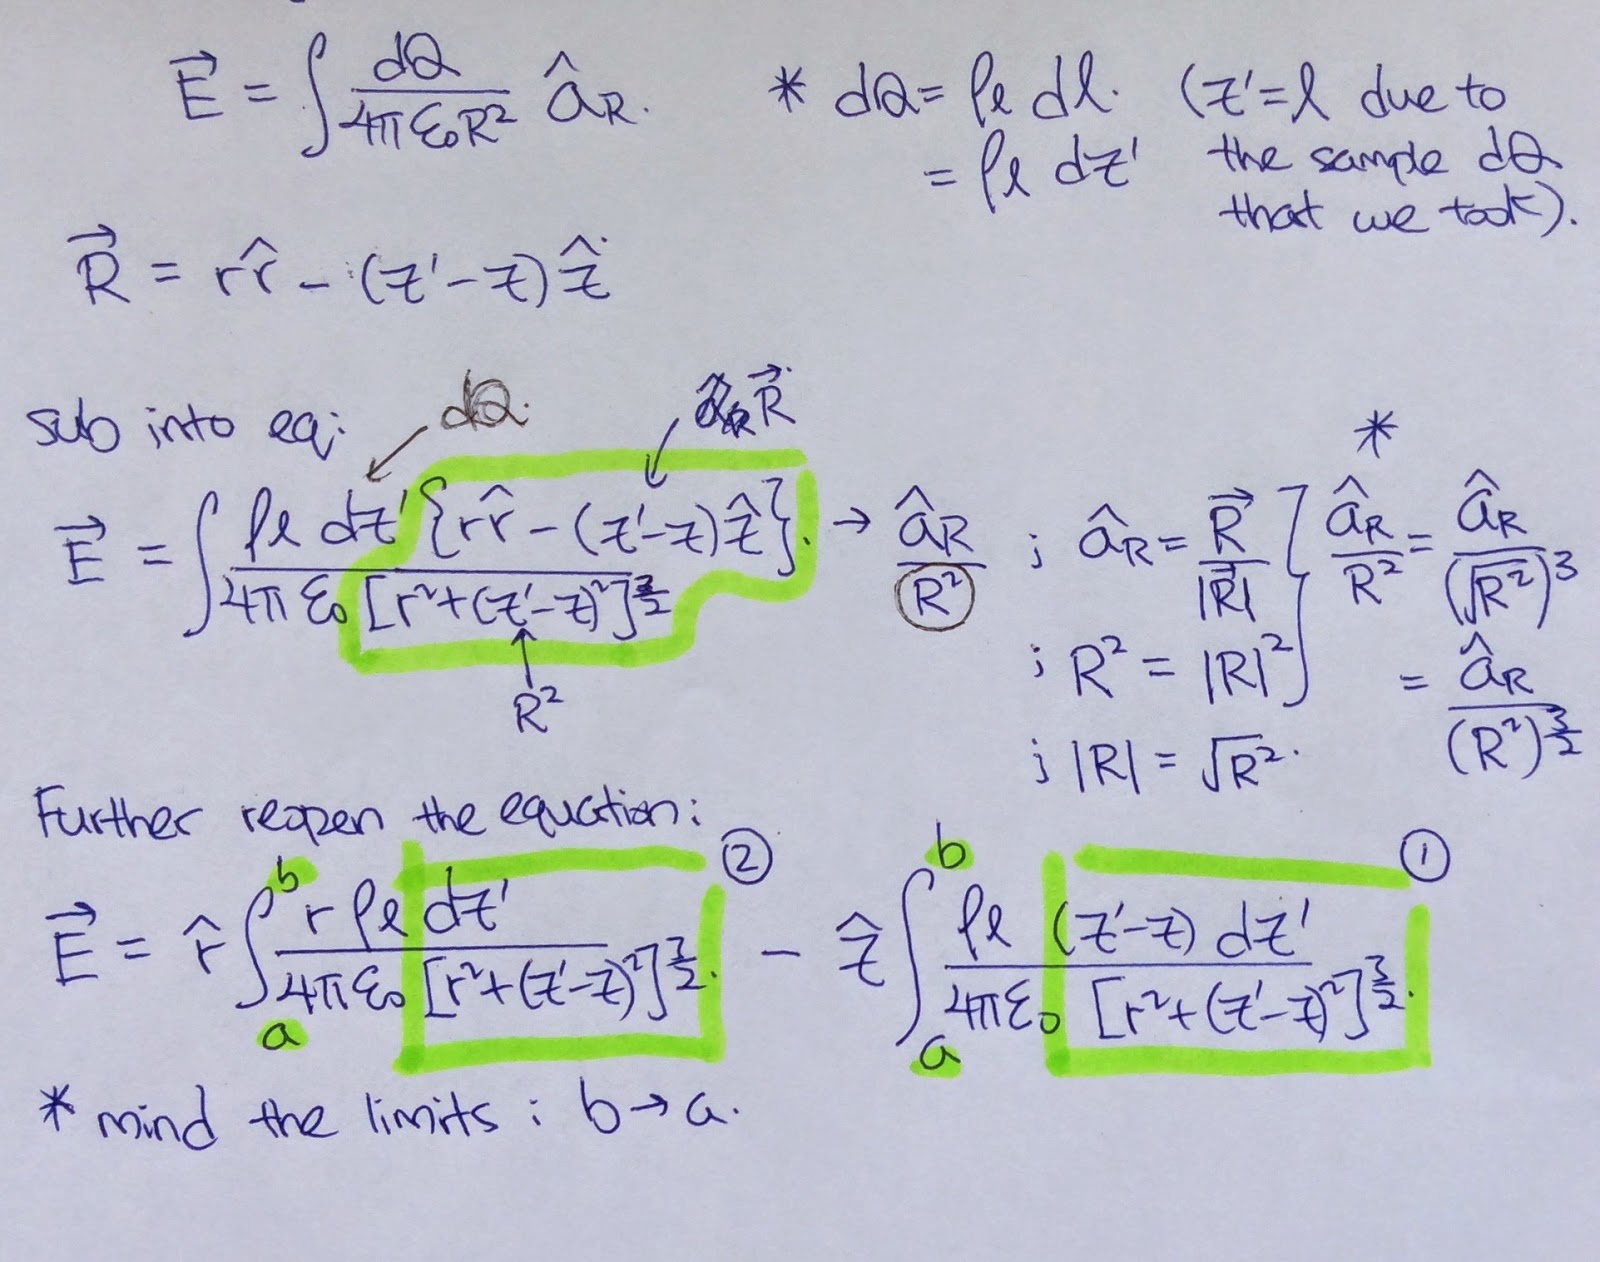 E⃗ = ∫ dQ / 4πε₀R² â_R.
* dQ = ρℓ dl. (z' = l due to
= ρℓ dz' the sample dQ
that we took).
R⃗ = r r̂ - (z' - z) ẑ
sub into eq:
dQ.
R⃗
E⃗ = ∫ ρℓ dz' {r r̂ - (z' - z) ẑ} / 4πε₀ [r² + (z' - z)²]^3/2 . → â_R / R² ; â_R = R⃗ / |R⃗|
R²
; R² = |R|²
; |R| = √R².
*
â_R / R² = â_R / (√R²)³
= â_R / (R²)^3/2
Further reopen the equation:
② ①
E⃗ = r̂ ∫_a^b r ρℓ dz' / 4πε₀ [r² + (z' - z)²]^3/2 . - ẑ ∫_a^b ρℓ (z' - z) dz' / 4πε₀ [r² + (z' - z)²]^3/2 .
* mind the limits : b → a.